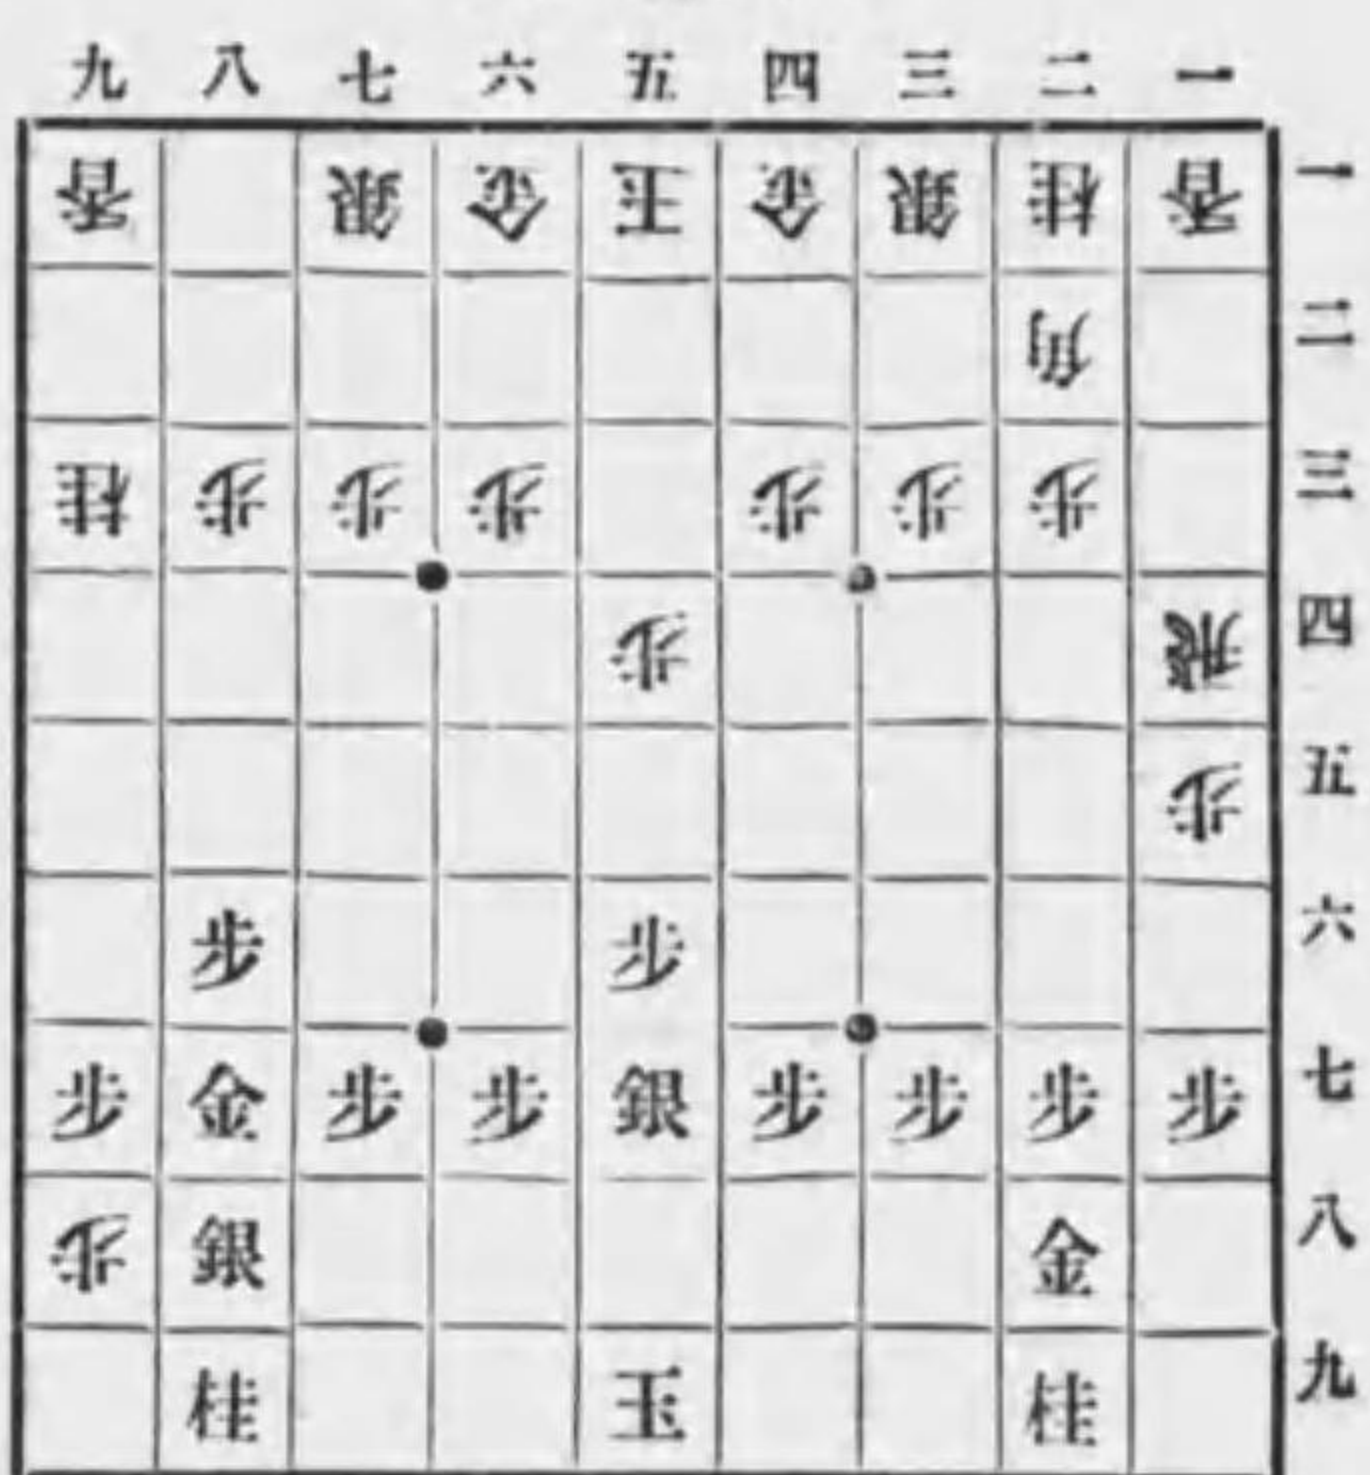 九 八 七 六 五 四 三 二 一
香 銀 金 玉 金 銀 桂 香 一
角 二
桂 歩 歩 歩 歩 歩 歩 三
歩 飛 四
歩 五
歩 歩 六
歩 金 歩 歩 銀 歩 歩 歩 歩 七
歩 銀 金 八
桂 玉 桂 九